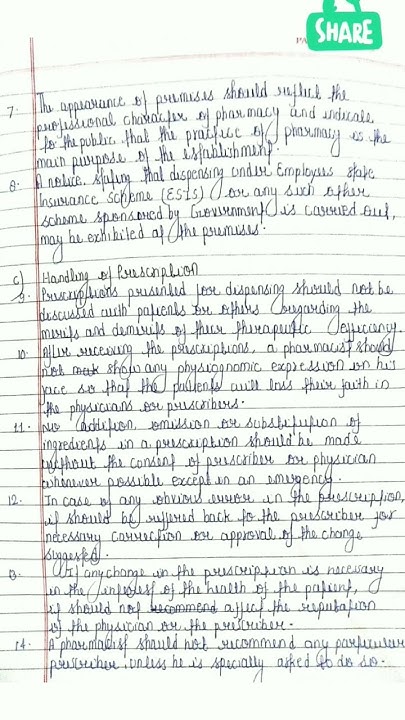 SHARE
PA
7. The appearance of premises should reflect the
professional character of pharmacy and indicate
to the public that the practice of pharmacy is the
main purpose of the establishment.
8. A notice stating that dispensing under Employees state
Insurance Scheme (ESIS) or any such other
scheme sponsored by Government is carried out,
may be exhibited at the premises.
c) Handling of Prescription
9. Prescriptions presented for dispensing should not be
discussed with patients or others regarding the
merits and demerits of their therapeutic efficiency.
10. After receiving the prescriptions, a pharmacist should
not show any physiognomic expression on his
face so that the patients will loss their faith in
the physicians or prescribers.
11. No addition, omission or substitution of
ingredients in a prescription should be made
without the consent of prescriber or physician
whenever possible except in an emergency.
12. In case of any obvious error in the prescription,
it should be reffered back to the prescriber for
necessary correction or approval of the change
suggested.
13. If any change in the prescription is necessary
in the interest of the health of the patient,
it should not recommend affect the reputation
of the physician or the prescriber.
14. A pharmacist should not recommend any particular
prescriber, unless he is specially asked to do so.